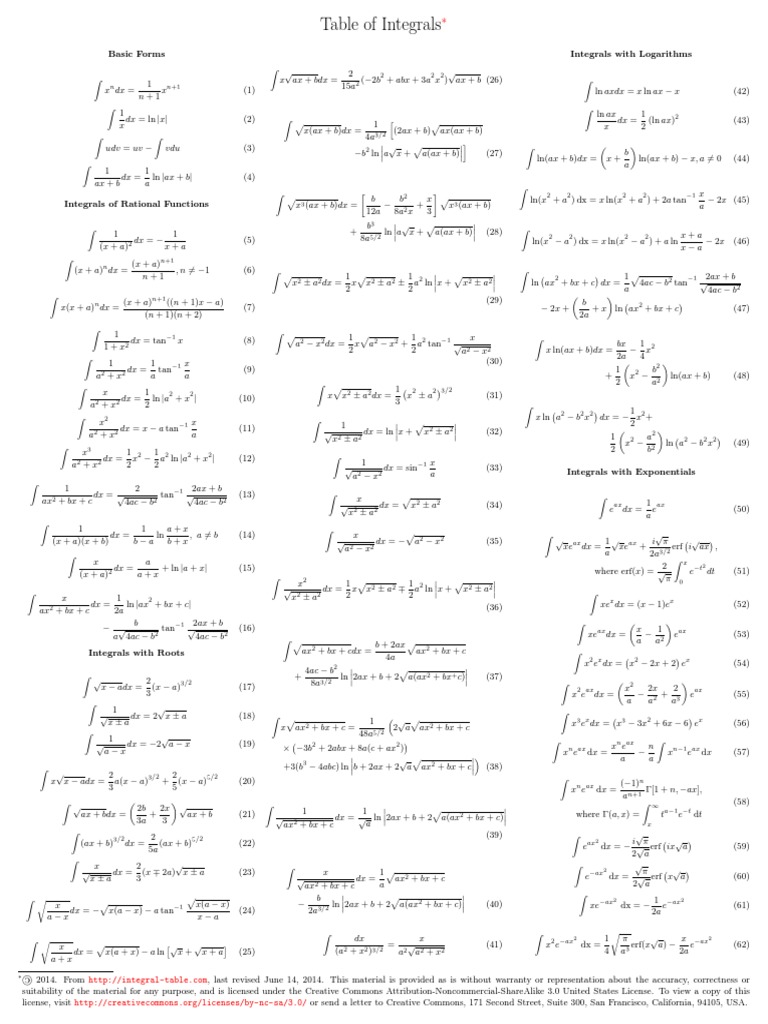 Table of Integrals*
Basic Forms
∫ xⁿdx = 1/(n+1) xⁿ⁺¹ (1)
∫ 1/x dx = ln |x| (2)
∫ udv = uv − ∫ vdu (3)
∫ 1/(ax + b) dx = 1/a ln |ax + b| (4)
Integrals of Rational Functions
∫ 1/(x + a)² dx = − 1/(x + a) (5)
∫ (x + a)ⁿdx = (x + a)ⁿ⁺¹/(n + 1), n ≠ −1 (6)
∫ x(x + a)ⁿdx = (x + a)ⁿ⁺¹((n + 1)x − a)/((n + 1)(n + 2)) (7)
∫ 1/(1 + x²) dx = tan⁻¹ x (8)
∫ 1/(a² + x²) dx = 1/a tan⁻¹ x/a (9)
∫ x/(a² + x²) dx = 1/2 ln |a² + x²| (10)
∫ x²/(a² + x²) dx = x − a tan⁻¹ x/a (11)
∫ x³/(a² + x²) dx = 1/2 x² − 1/2 a² ln |a² + x²| (12)
∫ 1/(ax² + bx + c) dx = 2/√(4ac − b²) tan⁻¹ (2ax + b)/√(4ac − b²) (13)
∫ 1/((x + a)(x + b)) dx = 1/(b − a) ln (a + x)/(b + x), a ≠ b (14)
∫ x/(x + a)² dx = a/(a + x) + ln |a + x| (15)
∫ x/(ax² + bx + c) dx = 1/(2a) ln |ax² + bx + c|
− b/(a√(4ac − b²)) tan⁻¹ (2ax + b)/√(4ac − b²) (16)
Integrals with Roots
∫ √(x − a) dx = 2/3 (x − a)^(3/2) (17)
∫ 1/√(x ± a) dx = 2√(x ± a) (18)
∫ 1/√(a − x) dx = −2√(a − x) (19)
∫ x√(x − a) dx = 2/3 a(x − a)^(3/2) + 2/5 (x − a)^(5/2) (20)
∫ √(ax + b) dx = (2b/3a + 2x/3) √(ax + b) (21)
∫ (ax + b)^(3/2) dx = 2/(5a) (ax + b)^(5/2) (22)
∫ x/√(x ± a) dx = 2/3 (x ∓ 2a)√(x ± a) (23)
∫ √(x/(a − x)) dx = −√(x(a − x)) − a tan⁻¹ √(x(a − x))/(x − a) (24)
∫ √(x/(a + x)) dx = √(x(a + x)) − a ln [√x + √(x + a)] (25)
∫ x√(ax + b) dx = 2/(15a²) (−2b² + abx + 3a²x²)√(ax + b) (26)
∫ √(x(ax + b)) dx = 1/(4a^(3/2)) [(2ax + b)√(ax(ax + b))
−b² ln |a√x + √(a(ax + b))|] (27)
∫ √(x³(ax + b)) dx = [b/(12a) − b²/(8a²x) + x/3] √(x³(ax + b))
+ b³/(8a^(5/2)) ln |a√x + √(a(ax + b))| (28)
∫ √(x² ± a²) dx = 1/2 x√(x² ± a²) ± 1/2 a² ln |x + √(x² ± a²)|
(29)
∫ √(a² − x²) dx = 1/2 x√(a² − x²) + 1/2 a² tan⁻¹ x/√(a² − x²)
(30)
∫ x√(x² ± a²) dx = 1/3 (x² ± a²)^(3/2) (31)
∫ 1/√(x² ± a²) dx = ln |x + √(x² ± a²)| (32)
∫ 1/√(a² − x²) dx = sin⁻¹ x/a (33)
∫ x/√(x² ± a²) dx = √(x² ± a²) (34)
∫ x/√(a² − x²) dx = −√(a² − x²) (35)
∫ x²/√(x² ± a²) dx = 1/2 x√(x² ± a²) ∓ 1/2 a² ln |x + √(x² ± a²)|
(36)
∫ √(ax² + bx + c) dx = (b + 2ax)/(4a) √(ax² + bx + c)
+ (4ac − b²)/(8a^(3/2)) ln |2ax + b + 2√(a(ax² + bx⁺c))| (37)
∫ x√(ax² + bx + c) = 1/(48a^(5/2)) (2√a√(ax² + bx + c)
× (−3b² + 2abx + 8a(c + ax²))
+3(b³ − 4abc) ln |b + 2ax + 2√a√(ax² + bx + c)|) (38)
∫ 1/√(ax² + bx + c) dx = 1/√a ln |2ax + b + 2√(a(ax² + bx + c))|
(39)
∫ x/√(ax² + bx + c) dx = 1/a √(ax² + bx + c)
− b/(2a^(3/2)) ln |2ax + b + 2√(a(ax² + bx + c))| (40)
∫ dx/(a² + x²)^(3/2) = x/(a²√(a² + x²)) (41)
Integrals with Logarithms
∫ ln axdx = x ln ax − x (42)
∫ ln ax/x dx = 1/2 (ln ax)² (43)
∫ ln(ax + b)dx = (x + b/a) ln(ax + b) − x, a ≠ 0 (44)
∫ ln(x² + a²) dx = x ln(x² + a²) + 2a tan⁻¹ x/a − 2x (45)
∫ ln(x² − a²) dx = x ln(x² − a²) + a ln (x + a)/(x − a) − 2x (46)
∫ ln (ax² + bx + c) dx = 1/a √(4ac − b²) tan⁻¹ (2ax + b)/√(4ac − b²)
− 2x + (b/2a + x) ln (ax² + bx + c) (47)
∫ x ln(ax + b)dx = bx/2a − 1/4 x²
+ 1/2 (x² − b²/a²) ln(ax + b) (48)
∫ x ln (a² − b²x²) dx = − 1/2 x²+
1/2 (x² − a²/b²) ln (a² − b²x²) (49)
Integrals with Exponentials
∫ e^(ax) dx = 1/a e^(ax) (50)
∫ √x e^(ax) dx = 1/a √x e^(ax) + i√π/(2a^(3/2)) erf (i√(ax)),
where erf(x) = 2/√π ∫₀ˣ e^(−t²) dt (51)
∫ xeˣdx = (x − 1)eˣ (52)
∫ xe^(ax) dx = (x/a − 1/a²) e^(ax) (53)
∫ x²eˣdx = (x² − 2x + 2) eˣ (54)
∫ x²e^(ax) dx = (x²/a − 2x/a² + 2/a³) e^(ax) (55)
∫ x³eˣdx = (x³ − 3x² + 6x − 6) eˣ (56)
∫ xⁿe^(ax) dx = xⁿe^(ax)/a − n/a ∫ xⁿ⁻¹e^(ax) dx (57)
∫ xⁿe^(ax) dx = (−1)ⁿ/aⁿ⁺¹ Γ[1 + n, −ax],
where Γ(a, x) = ∫ₓ^∞ t^(a−1) e^(−t) dt (58)
∫ e^(ax²) dx = − i√π/(2√a) erf (ix√a) (59)
∫ e^(−ax²) dx = √π/(2√a) erf (x√a) (60)
∫ xe^(−ax²) dx = − 1/(2a) e^(−ax²) (61)
∫ x²e^(−ax²) dx = 1/4 √(π/a³) erf(x√a) − x/(2a) e^(−ax²) (62)
*© 2014. From http://integral-table.com, last revised June 14, 2014. This material is provided as is without warranty or representation about the accuracy, correctness or
suitability of the material for any purpose, and is licensed under the Creative Commons Attribution-Noncommercial-ShareAlike 3.0 United States License. To view a copy of this
license, visit http://creativecommons.org/licenses/by-nc-sa/3.0/ or send a letter to Creative Commons, 171 Second Street, Suite 300, San Francisco, California, 94105, USA.